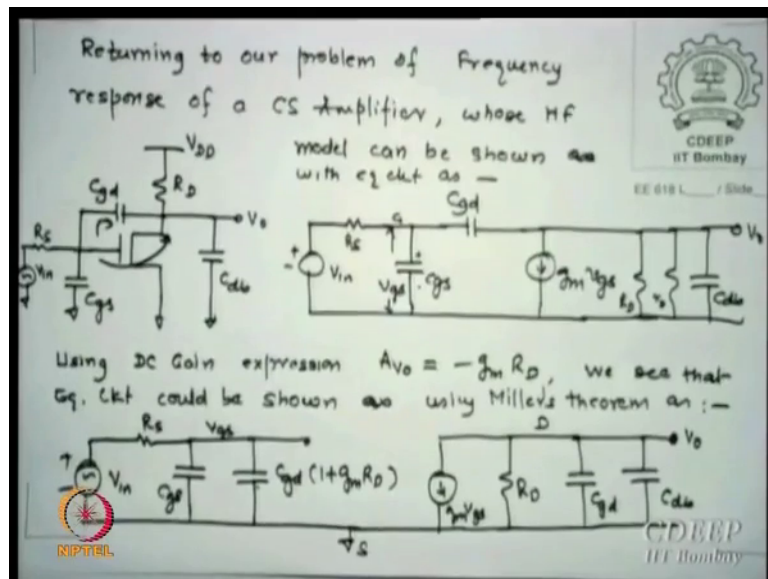 Returning to our problem of Frequency
response of a CS Amplifier, whose HF
model can be shown as
with eq ckt as -
CDEEP
IIT Bombay
EE 618 L___ / Slide
VDD
RD
Cgd
Vo
Rs
Vin
Cgs
Cdb
Rs
G
Cgd
Vo
Vin
Vgs
Cgs
gm Vgs
RD
ro
Cdb
Using DC Gain expression Avo = - gm RD, we see that
Eq. Ckt could be shown as using Miller's theorem as :-
Rs
Vgs
Vin
Cgs
Cgd (1+gm RD)
D
Vo
gm Vgs
RD
Cgd
Cdb
S
NPTEL
CDEEP
IIT Bombay